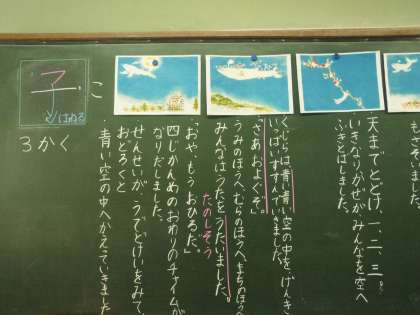 もきそ
天までとどけ、一、二、三。
いきなりかぜがみんなを空へ
ふきとばしました。
くじらは、青い青い空の中を、げんき
いっぱいすすんでいきました。
「さあ、およぐぞ。」
うみのほうへ、むらのほうへ、まちのほうへ
みんなは、うたをうたいました。
たのしそう
「おや、もうおひるだ。」
四じかんめのおわりのチャイムが
なりだしました。
せんせいが、うでどけいをみて、
おどろくと
青い空の中へかえっていきました
子
こ
はねる
3かく